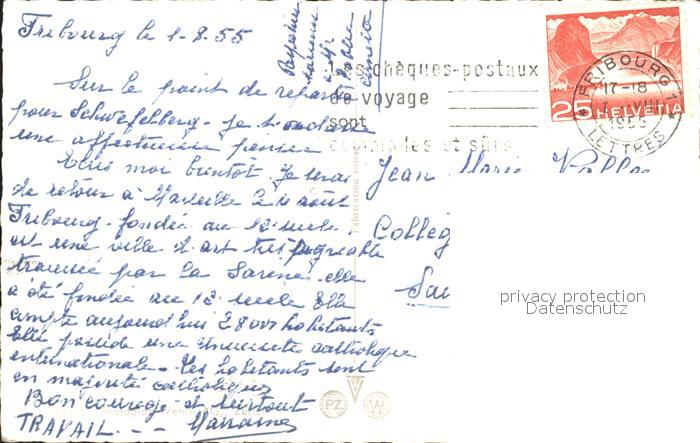 Fribourg le 1-8-55
Sur le point de repartir
pour Schwefelberg - je t'adresse
une affectueuse pensée
Ecris moi bientôt. Je serai
de retour à Marseille le 10 août
Fribourg - fondée au 12 siècle
est une ville d'art très agréable
traversée par la Sarine. elle
a été fondée au 12 siècle Elle
compte aujourd'hui 28000 habitants
Elle possède une université catholique
internationale - Les habitants sont
en majorité catholiques
Bon courage et surtout
TRAVAIL - - - Marraine
Les chèques-postaux
de voyage
sont
commodes et sûrs
FRIBOURG 1
17-18
VIII
1955
LETTRES
25 HELVETIA
Jean Marie
Collèg
privacy protection
Datenschutz
PZ W